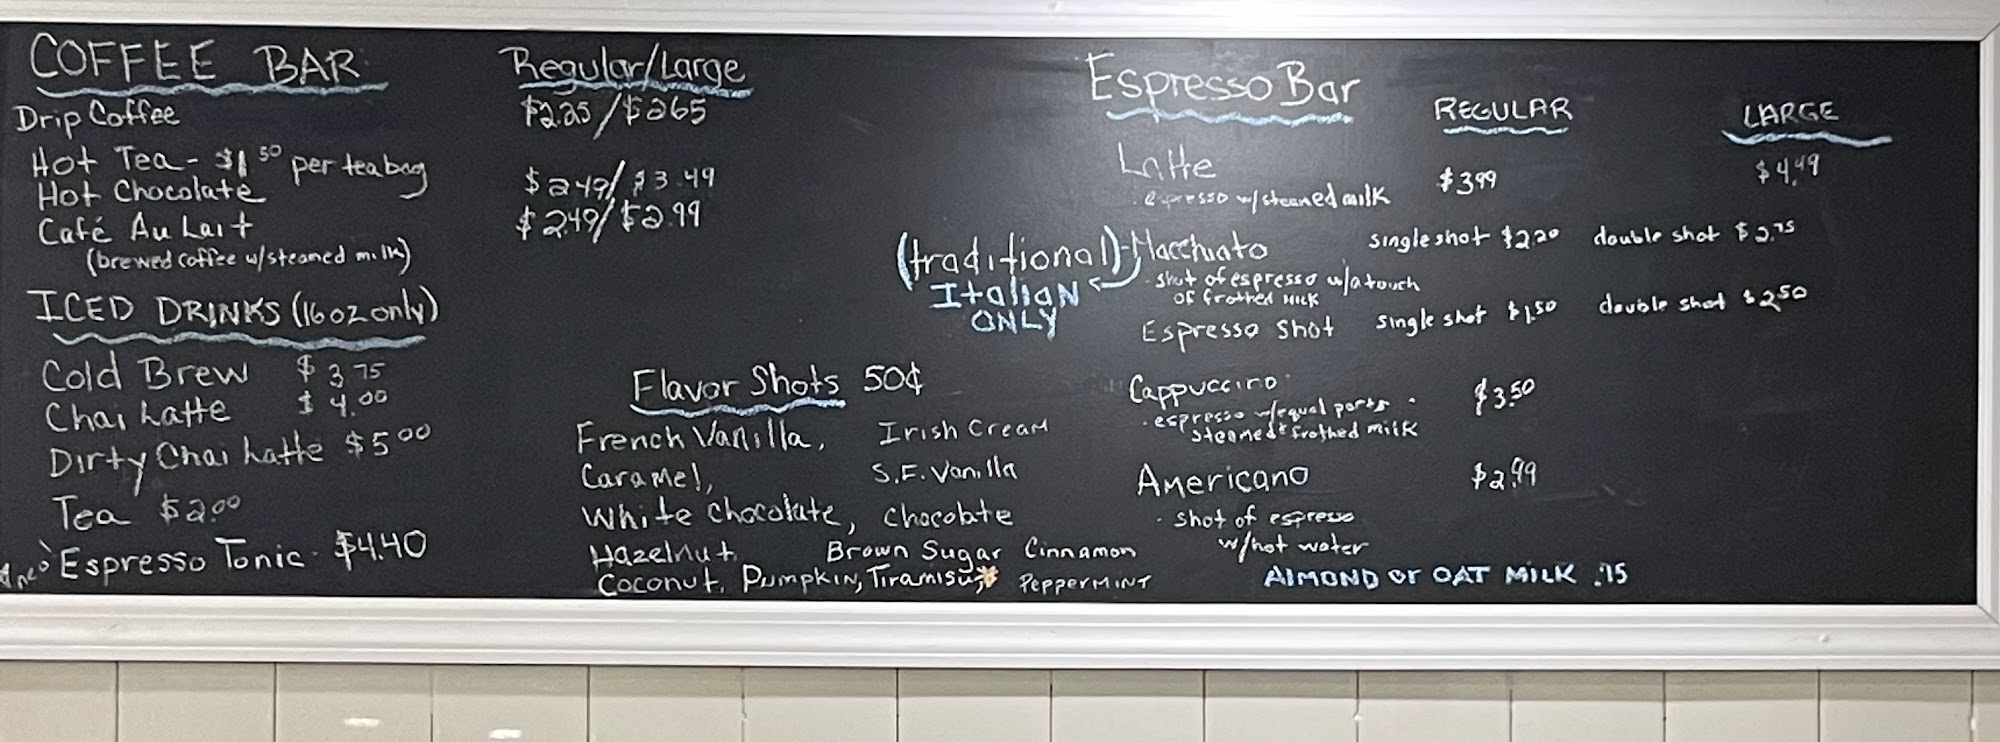 COFFEE BAR Regular/Large
Drip Coffee $2.25/$2.65
Hot Tea - $1.50 per teabag
Hot Chocolate $2.49/$3.49
Café Au Lait $2.49/$2.99
(brewed coffee w/steamed milk)
ICED DRINKS (16oz only)
Cold Brew $3.75
Chai Latte $4.00
Dirty Chai Latte $5.00
Tea $2.00
Espresso Tonic - $4.40
Flavor Shots 50¢
French Vanilla, Irish Cream
Caramel, S.F. Vanilla
White Chocolate, Chocolate
Hazelnut, Brown Sugar Cinnamon
Coconut, Pumpkin, Tiramisu, Peppermint
Espresso Bar REGULAR LARGE
Latte $3.99 $4.49
· espresso w/steamed milk
(traditional) - Macchiato single shot $2.20 double shot $2.75
Italian ONLY
· shot of espresso w/a touch
of frothed milk
Espresso Shot single shot $1.50 double shot $2.50
Cappuccino $3.50
· espresso w/equal parts
steamed & frothed milk
Americano $2.99
· shot of espresso
w/hot water
ALMOND or OAT MILK .75